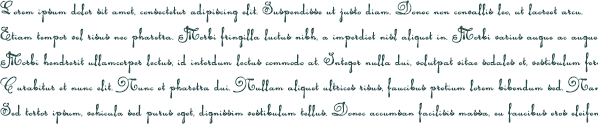 Lorem ipsum dolor sit amet, consectetur adipiscing elit. Suspendisse ut justo diam. Donec non convallis leo, ut laoreet arcu.
Etiam tempor vel risus nec pharetra. Morbi fringilla luctus nibh, a imperdiet nisl aliquet in. Morbi varius augue ac augue
Morbi hendrerit ullamcorper lectus, id interdum lectus commodo at. Integer nulla dui, volutpat vitae sodales et, vestibulum fer
Curabitur et nunc elit. Nunc et pharetra dui. Nullam aliquet ultrices risus, faucibus pretium lorem bibendum sed. Nae
Sed tortor ipsum, vehicula sed purus eget, dignissim vestibulum tellus. Donec accumsan facilisis massa, eu faucibus eros eleifen